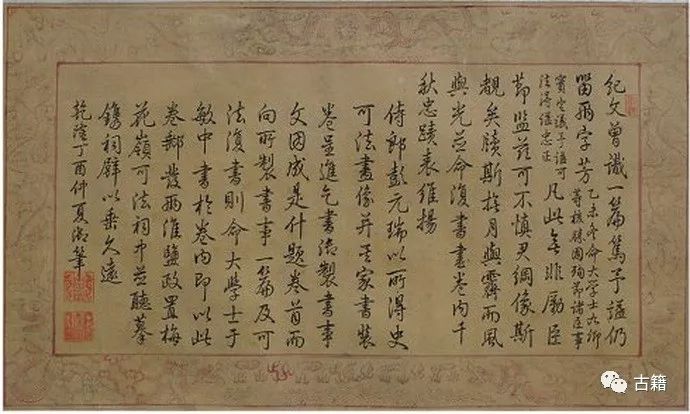 紀文曾識一篇篤予諡仍
留兩字芳
乙未冬命大學士九卿
等核勝國殉節諸臣事
實定議予諡可
法得諡忠正
凡此無非勵臣
節監茲可不慎尹綱像斯
覩矣牘斯撫月與霽而風
與光並命復書書卷內千
秋忠蹟表維揚
侍郎彭元瑞以所得史
可法畫像并其家書裝
卷呈進乞書御製書事
文因成是什題卷首而
向所製書事一篇及可
法復書則命大學士于
敏中書於卷內即以此
卷郵發兩淮鹽政置梅
花嶺可法祠中並聽摹
鐫祠壁以垂久遠
乾隆丁酉仲夏御筆
古籍